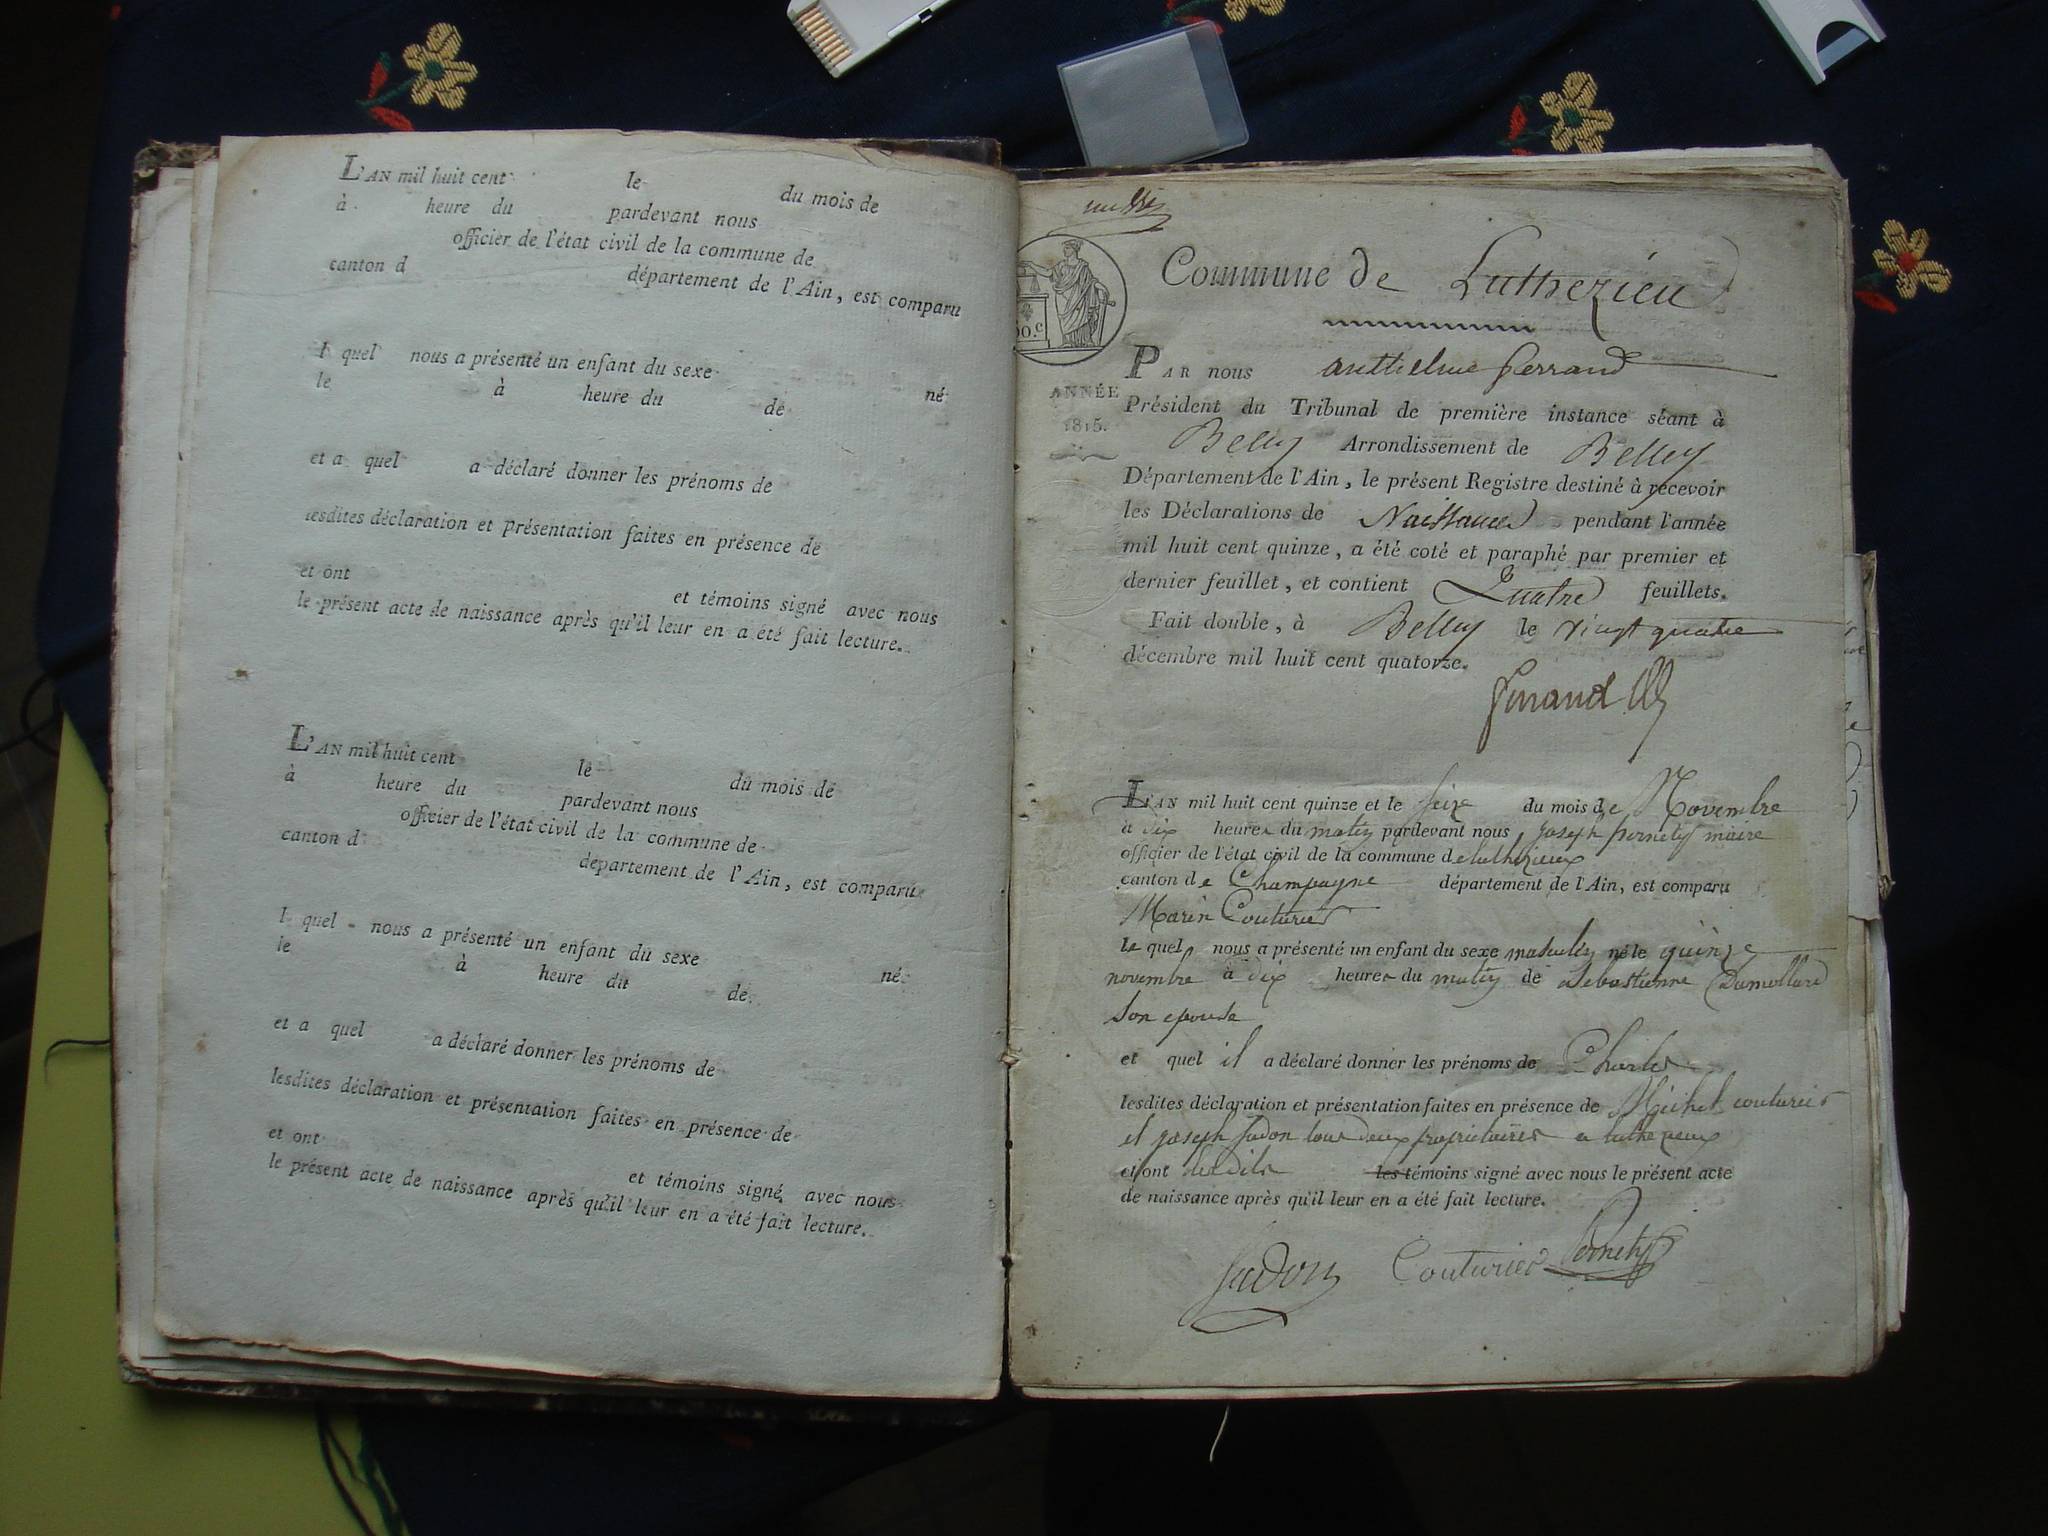 L'AN mil huit cent le du mois de
à heure du pardevant nous
officier de l'état civil de la commune de
canton d département de l'Ain, est comparu
l quel nous a présenté un enfant du sexe né
le à heure du de
et a quel a déclaré donner les prénoms de
lesdites déclaration et présentation faites en présence de
et ont et témoins signé avec nous
le présent acte de naissance après qu'il leur en a été fait lecture.
L'AN mil huit cent le du mois de
à heure du pardevant nous
officier de l'état civil de la commune de
canton d département de l'Ain, est comparu
l quel nous a présenté un enfant du sexe né
le à heure du de
et a quel a déclaré donner les prénoms de
lesdites déclaration et présentation faites en présence de
et ont et témoins signé avec nous
le présent acte de naissance après qu'il leur en a été fait lecture.
Commune de Luthezieu
50.c
ANNÉE
1815.
PAR nous anthelme ferrand
Président du Tribunal de première instance séant à
Belley Arrondissement de Belley
Département de l'Ain, le présent Registre destiné à recevoir
les Déclarations de Naissances pendant l'année
mil huit cent quinze, a été coté et paraphé par premier et
dernier feuillet, et contient Quatre feuillets.
Fait double, à Belley le vingt quatre
décembre mil huit cent quatorze.
ferrand
L'AN mil huit cent quinze et le seize du mois de Novembre
à dix heures du matin pardevant nous joseph pernety maire
officier de l'état civil de la commune de luthezieux
canton de Champagne département de l'Ain, est comparu
Marin Couturier
le quel nous a présenté un enfant du sexe masculin né le quinze
novembre à dix heures du matin de Sebastienne Dumollard
son epouse
et quel il a déclaré donner les prénoms de Charles
lesdites déclaration et présentation faites en présence de Michel couturier
et joseph judon tous deux propriétaires a luthezieux
et ont lesdits les témoins signé avec nous le présent acte
de naissance après qu'il leur en a été fait lecture.
judon Couturier Pernety